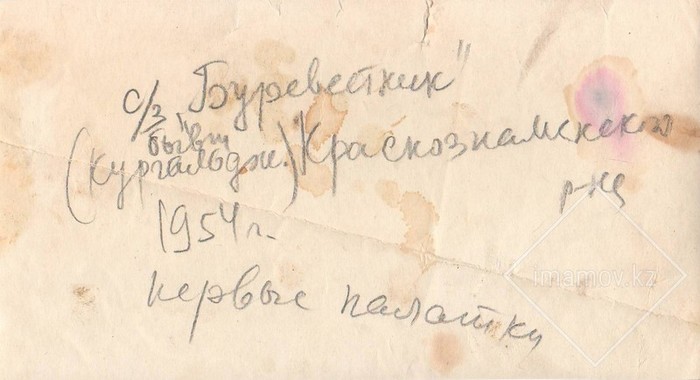 с/з "Буревестник"
(бывш
Кургальдж.) Краснознаменского
р-на
1954 г.
первые палатки
imamov.kz